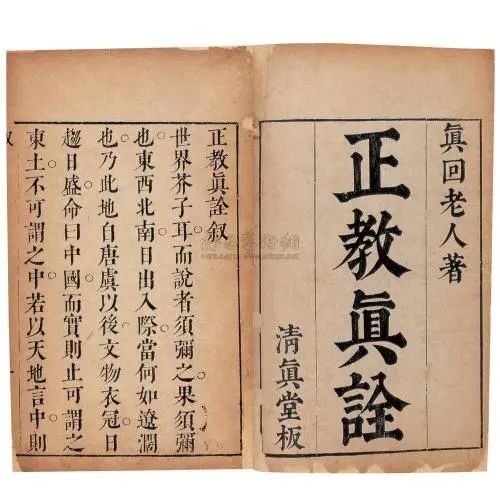 眞回老人著
正教眞詮
淸眞堂板
正教眞詮叙
世界芥子耳而說者須彌之果須彌
也東西北南日出入際當何如遼濶
也乃此地自唐虞以後文物衣冠日
趨日盛命曰中國而實則止可謂之
東土不可謂之中若以天地言中則